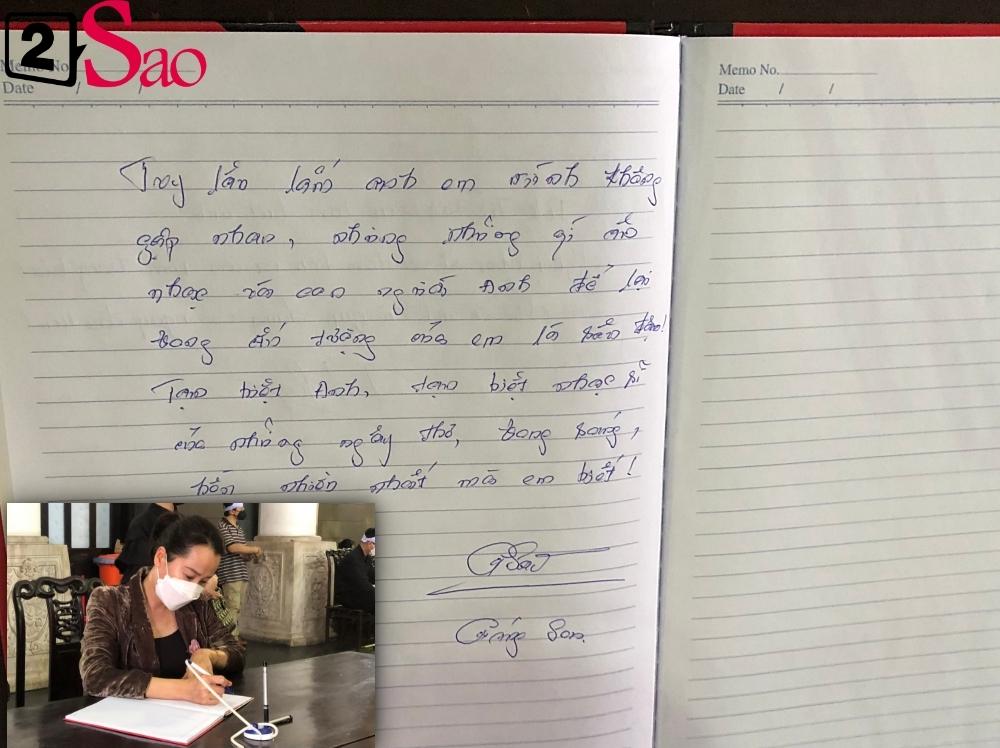 2 Sao
Memo No.
Date / /
Memo No.
Date / /
Tuy lâu lắm anh em mình không
gặp nhau, nhưng những gì âm
nhạc và con người Anh để lại
trong ấn tượng của em là sâu đậm!
Tạm biệt Anh, tạm biệt nhạc sĩ
của những ngây thơ, trong sáng,
hồn nhiên nhất mà em biết!
Giáng Son.